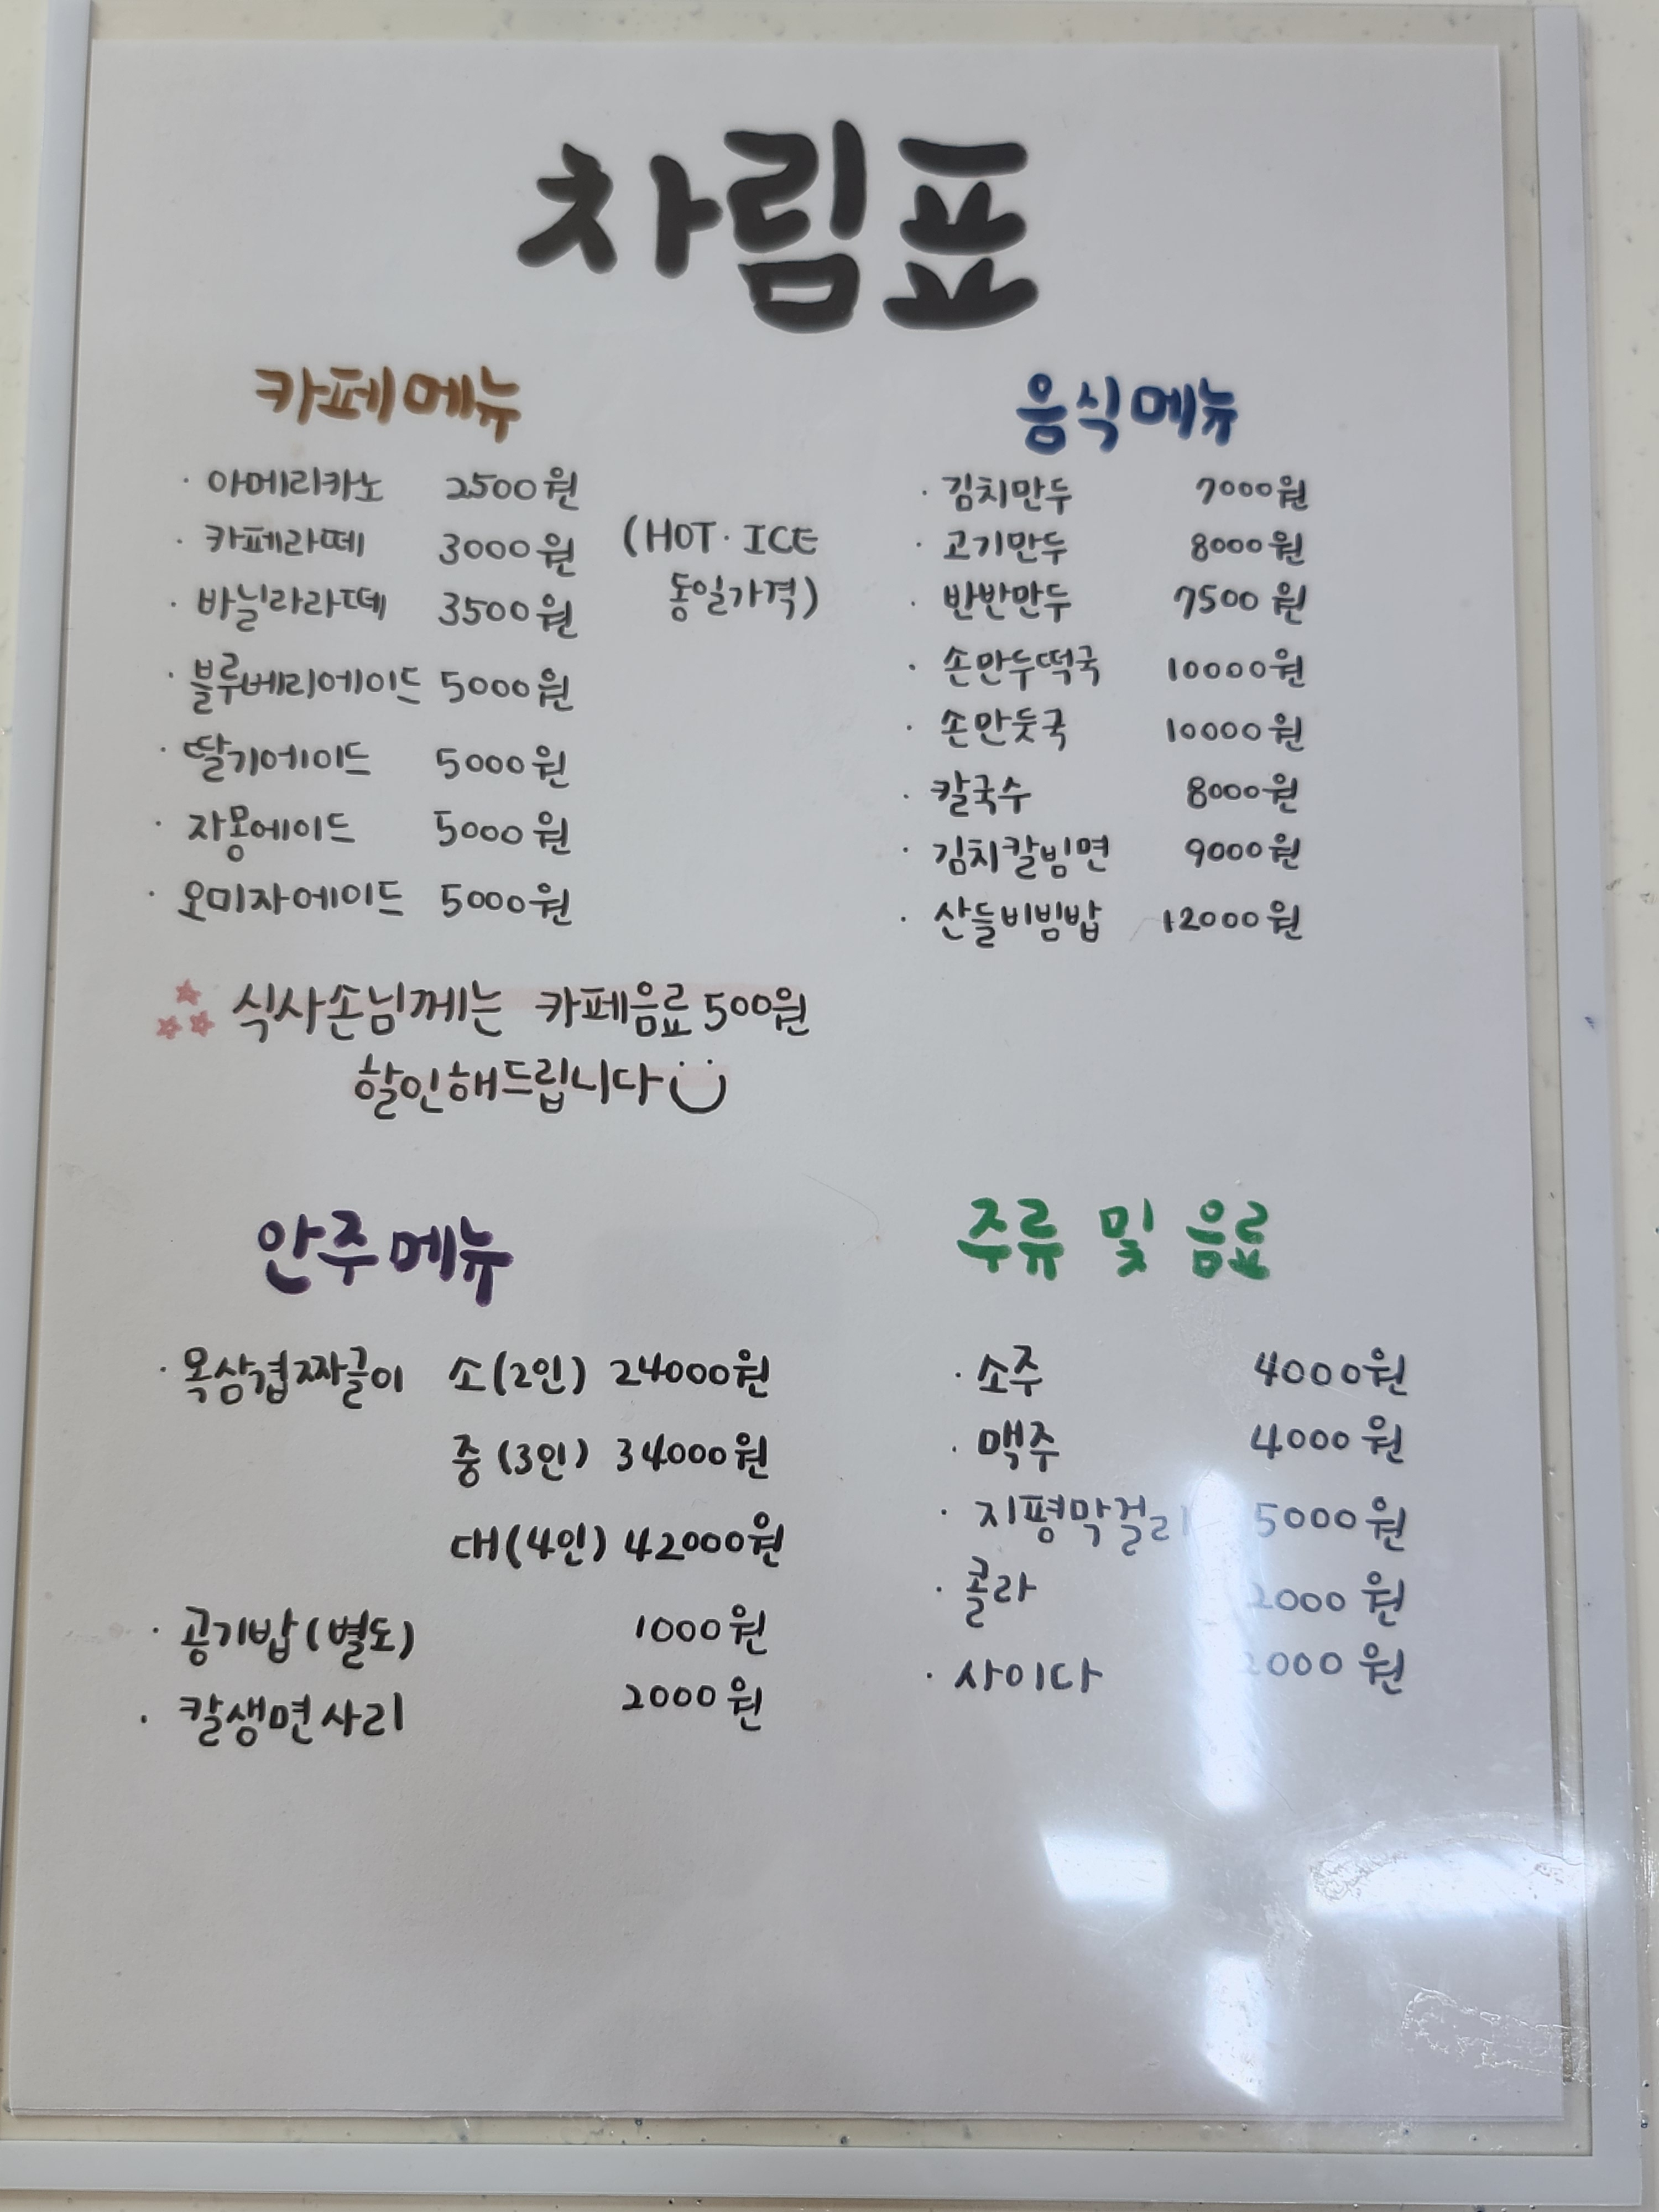 차림표
카페메뉴
· 아메리카노 2500원
· 카페라떼 3000원
(HOT · ICE
동일가격)
· 바닐라라떼 3500원
· 블루베리에이드 5000원
· 딸기에이드 5000원
· 자몽에이드 5000원
· 오미자에이드 5000원
식사손님께는 카페음료 500원
할인해드립니다
음식메뉴
· 김치만두 7000원
· 고기만두 8000원
· 반반만두 7500원
· 손만두떡국 10000원
· 손만둣국 10000원
· 칼국수 8000원
· 김치칼빔면 9000원
· 산들비빔밥 12000원
안주메뉴
· 목삼겹짜글이 소(2인) 24000원
중(3인) 34000원
대(4인) 42000원
· 공기밥(별도) 1000원
· 칼생면사리 2000원
주류 및 음료
· 소주 4000원
· 맥주 4000원
· 지평막걸리 5000원
· 콜라 2000원
· 사이다 2000원